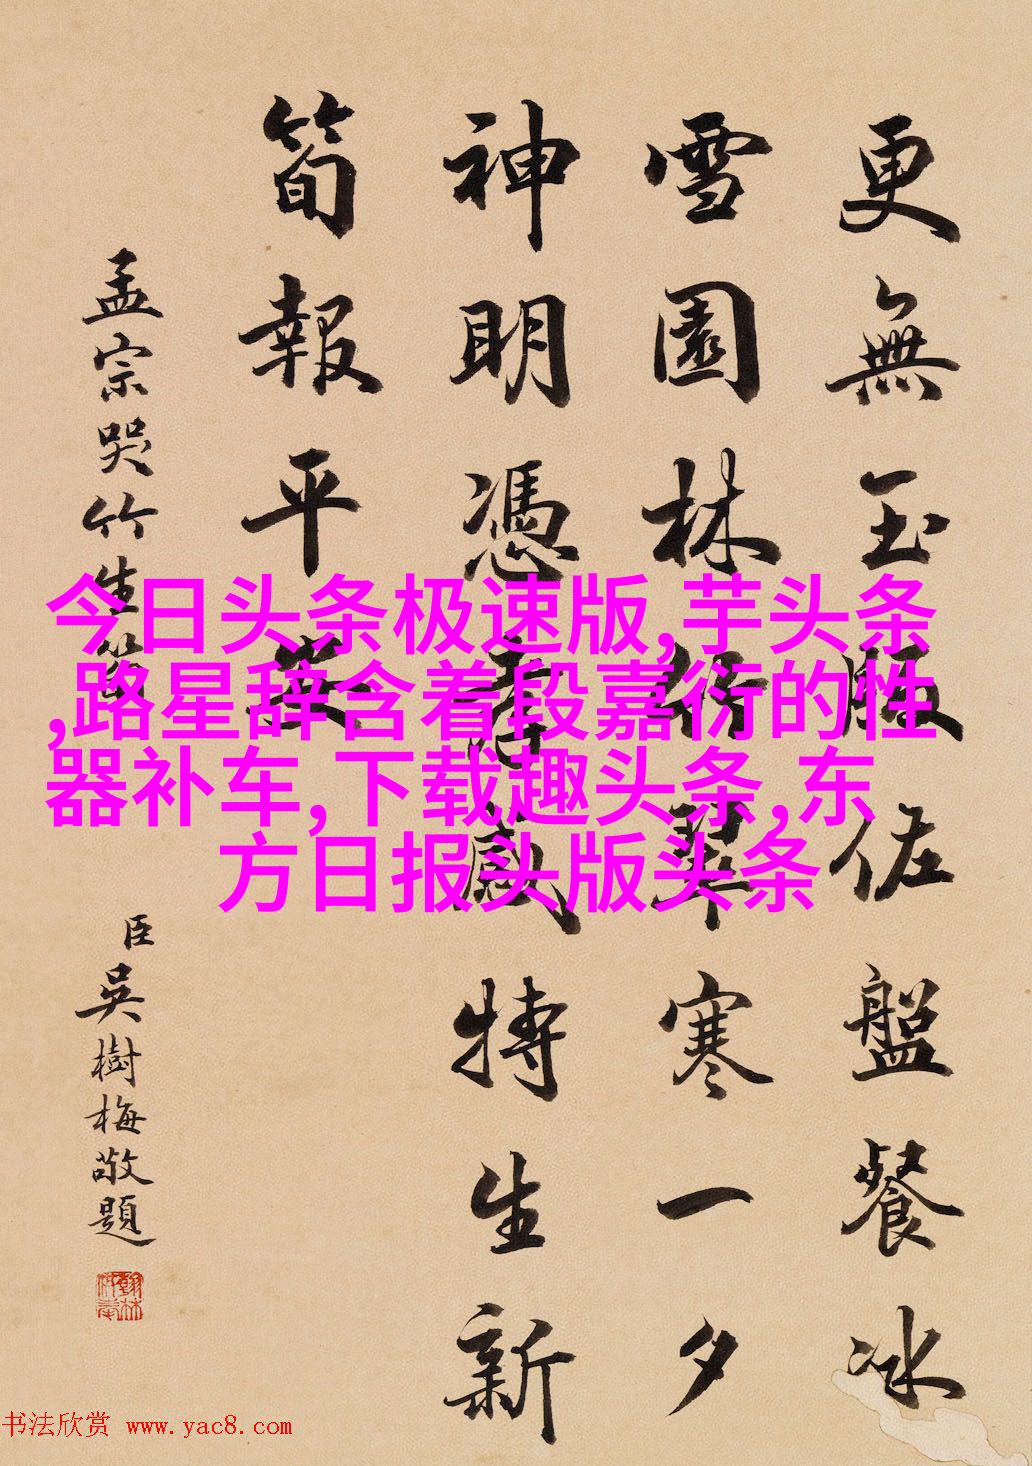 更無玉版佐盤餐冰
雪園林竹翠寒一夕
神明憑孝感特生新
筍報平安
孟宗哭竹生筍
臣吳樹梅敬題
今日头条极速版,芋头条
,路星辞含着段嘉衍的性
器补车,下载趣头条,东
方日报头版头条
书法欣赏 www.yac8.com